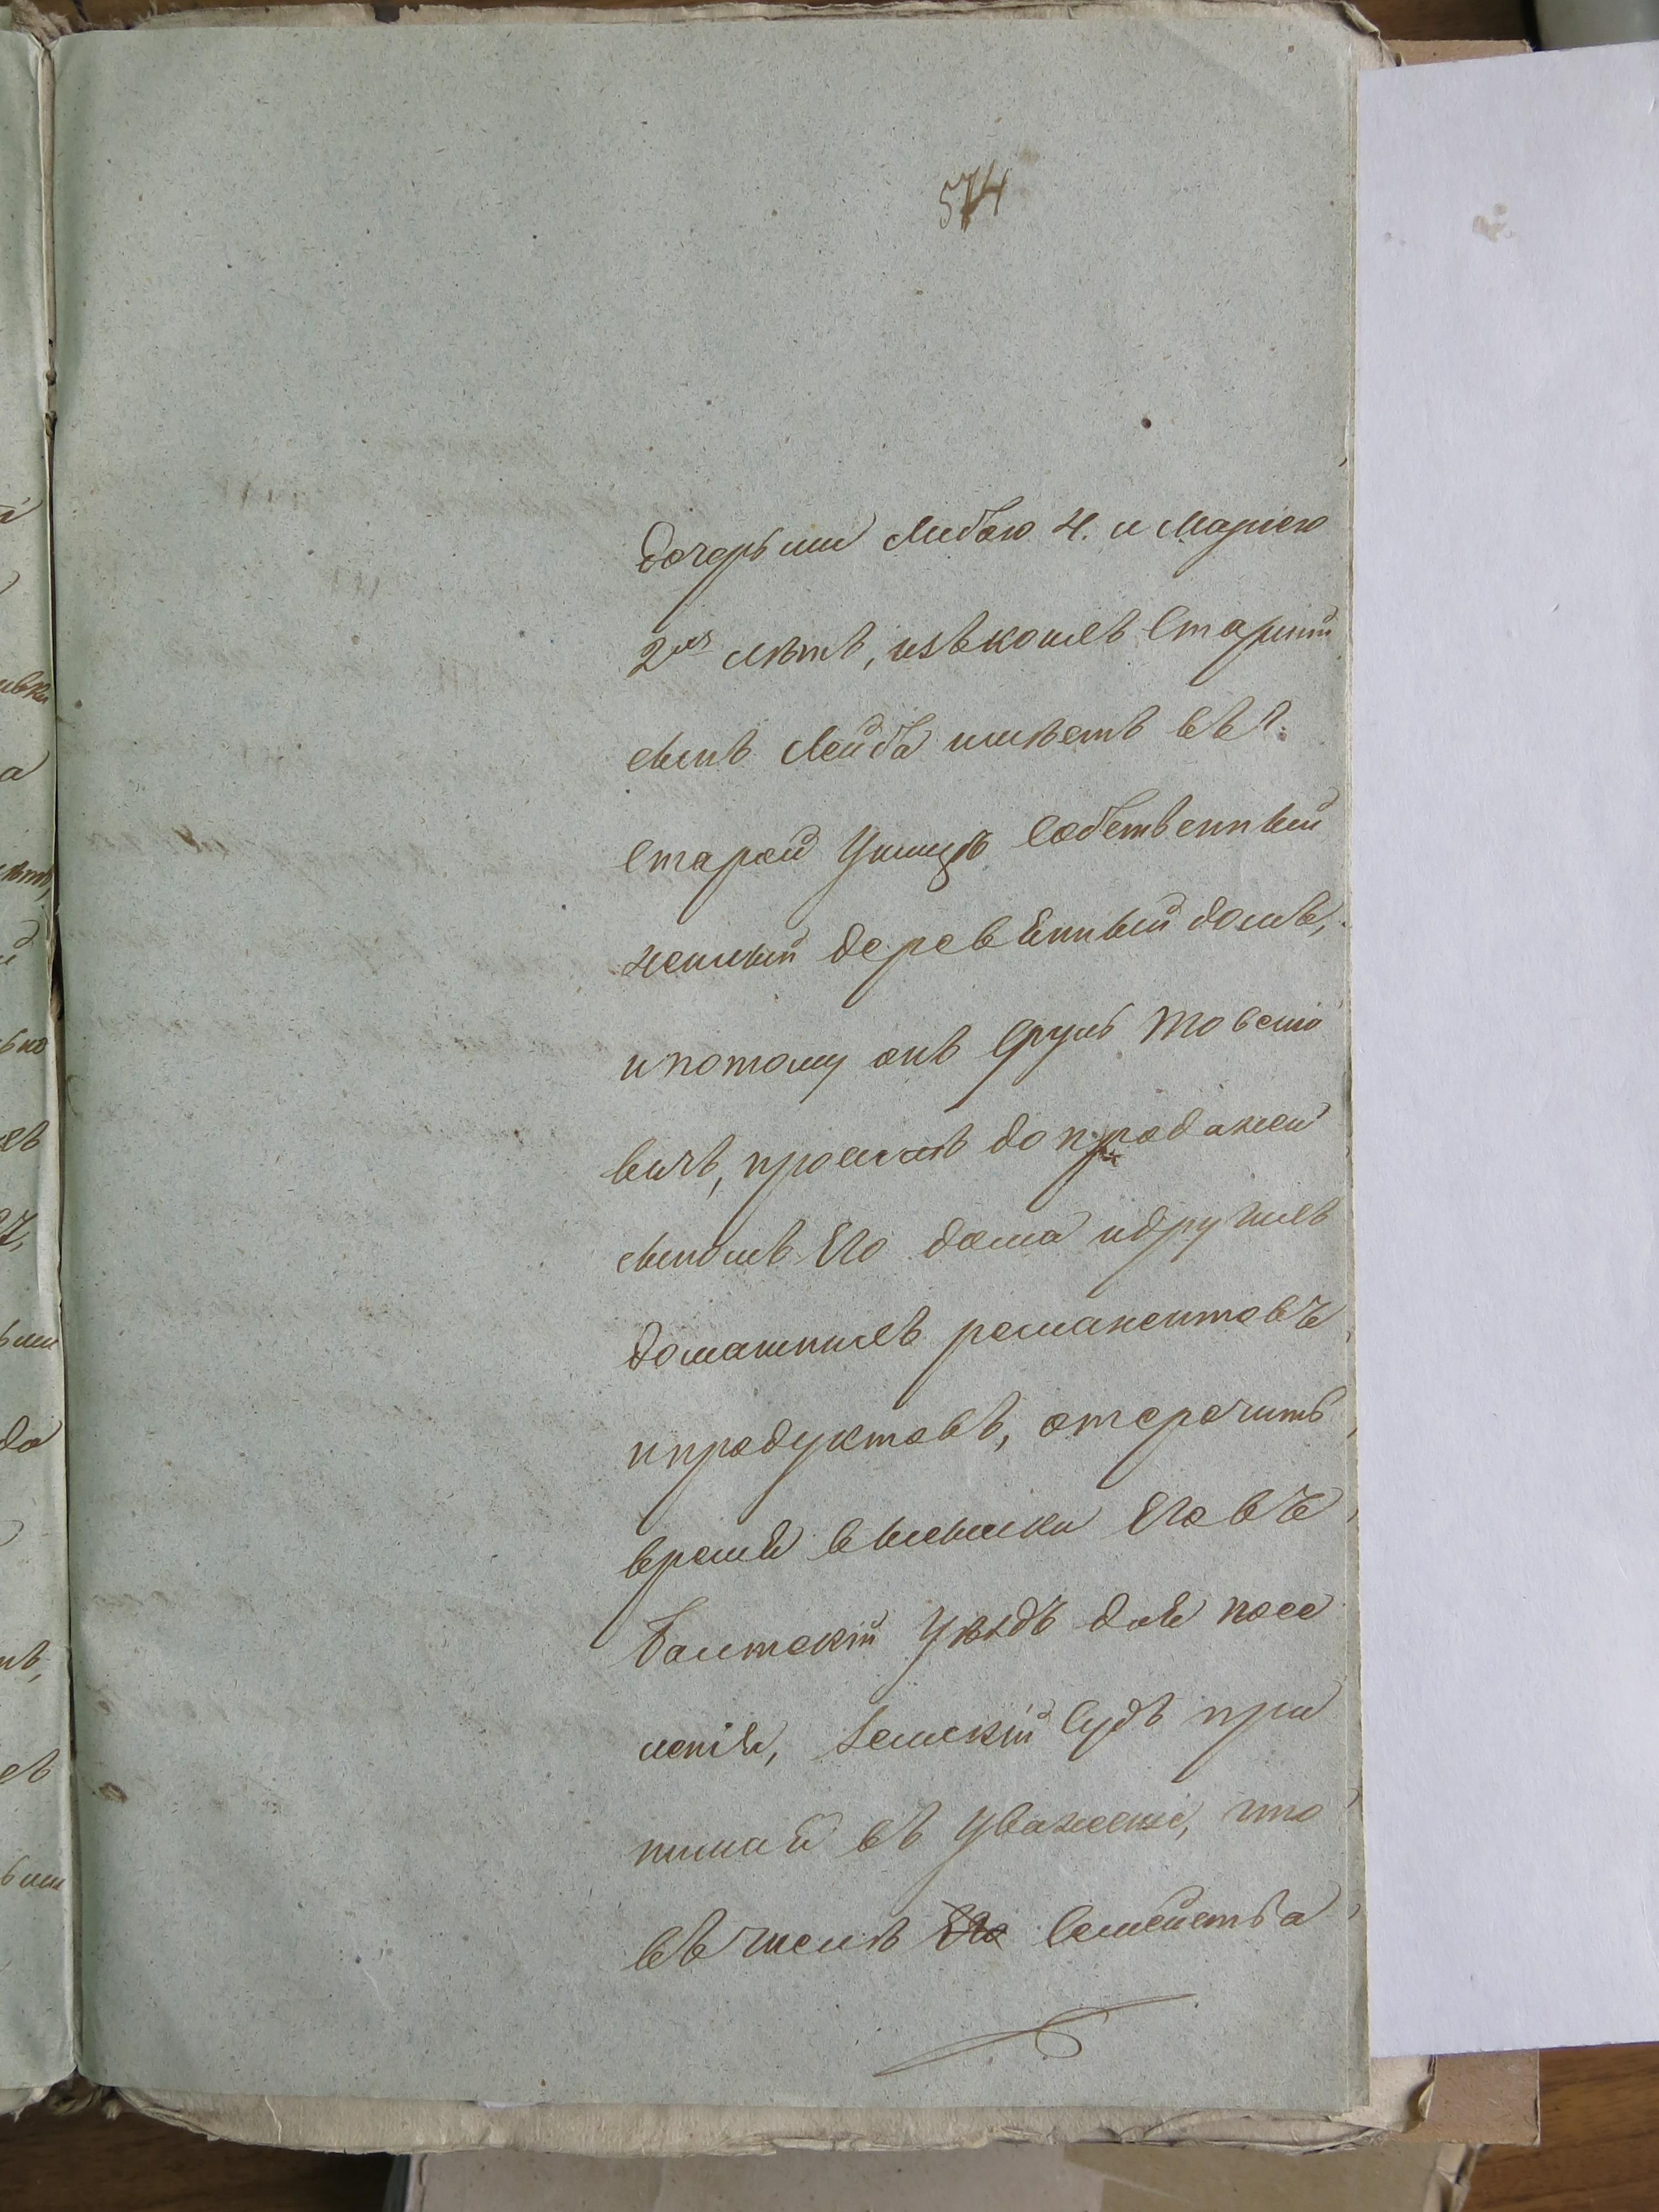 574
дочерьми Либою 4. и Маріею
2хъ лѣтъ, изъ коихъ Старшій
сынъ Лейба имѣетъ въ г.
Старой Ушицѣ Собственный
жилый деревянный домъ,
и потому онъ Сруль
вичъ, проситъ до продажи
сыномъ Его дома и другихъ
домашнихъ ремакентовъ
и продуктовъ, отсрочить
время высылки Его въ
Балтскій Уѣздъ для посе
ленія, Земскій Судъ при
нимая въ Уваженіе, что
въ числѣ Семейства